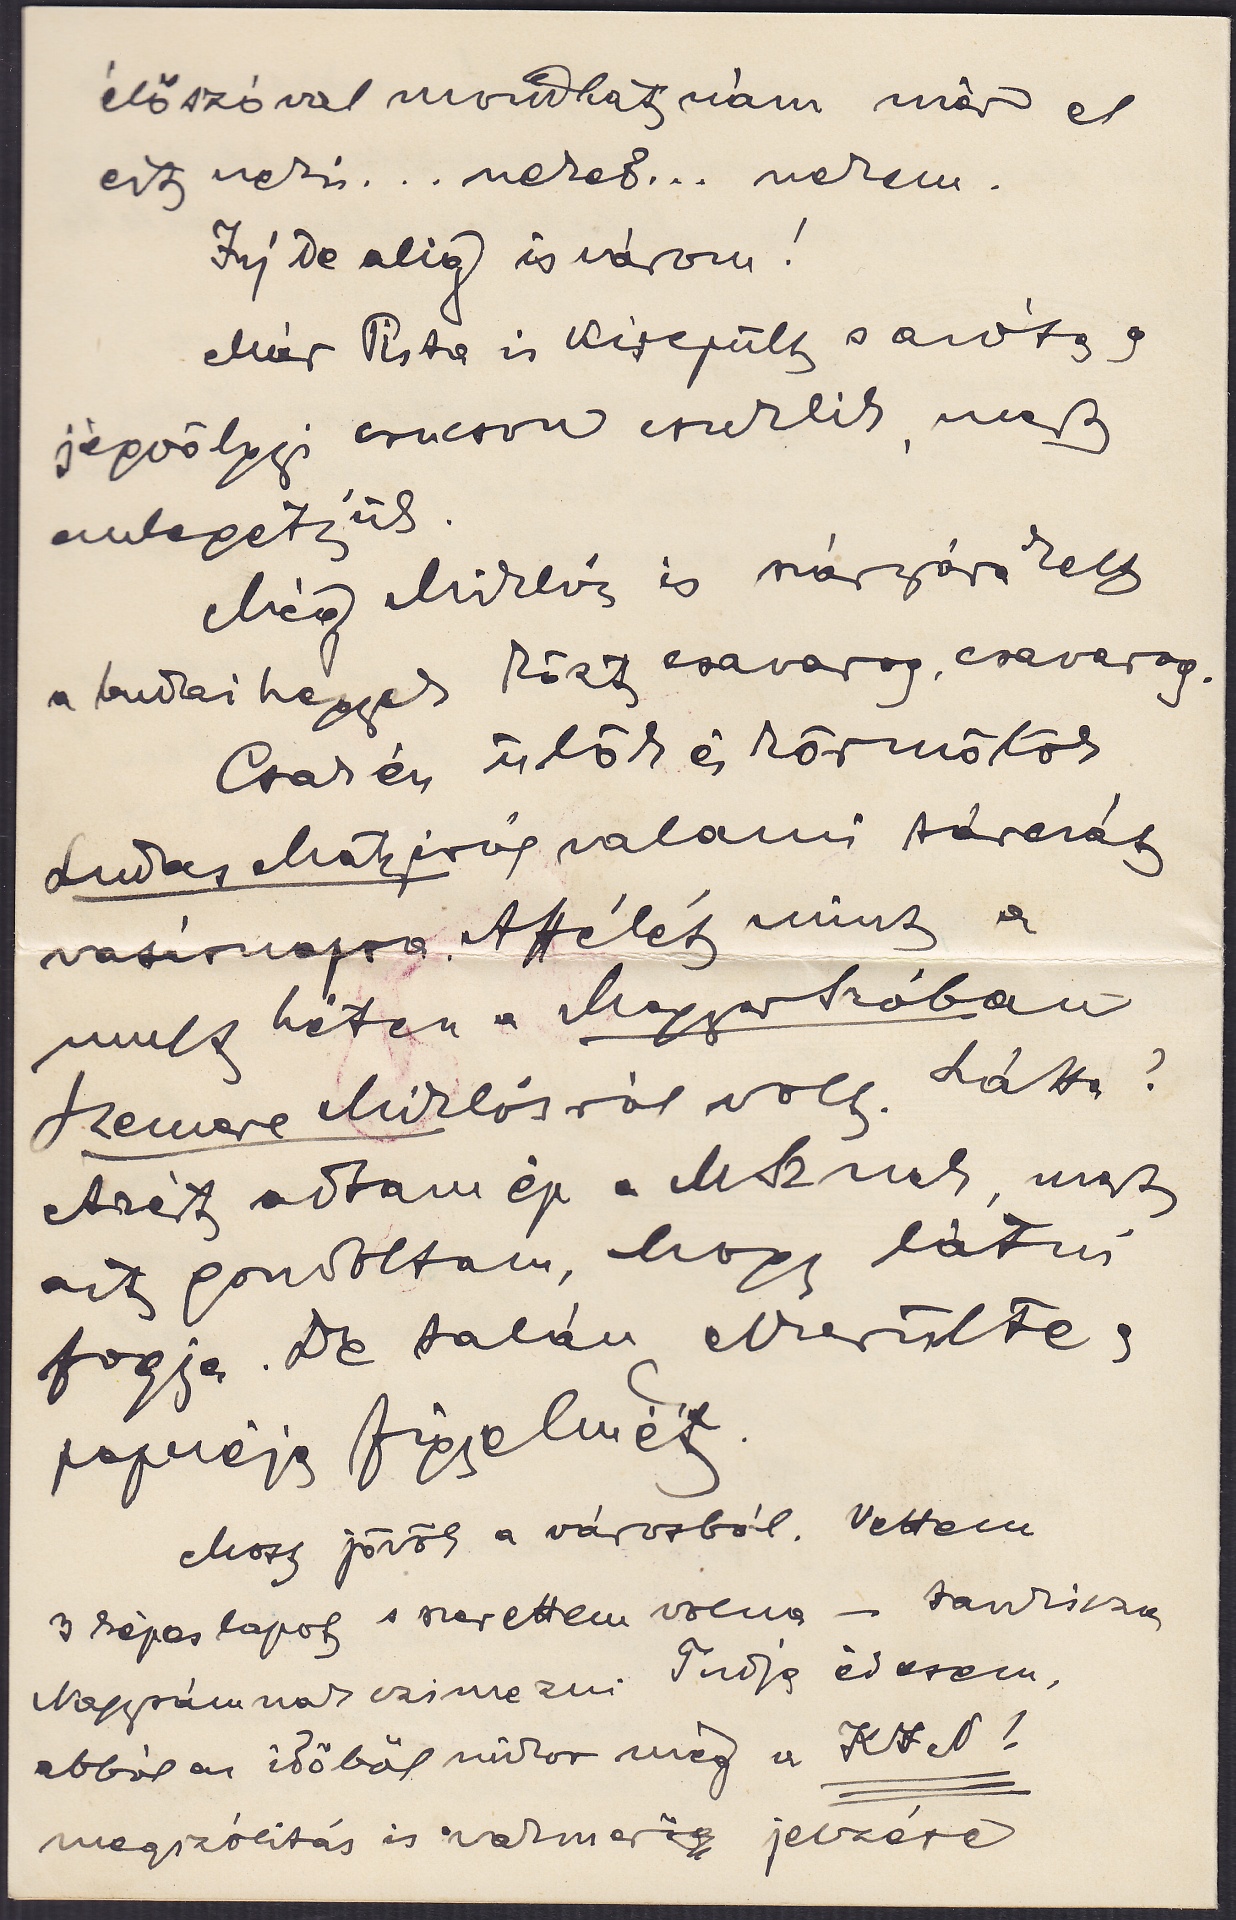 élőszóval mondhatnám már el
ezt neki... neked... nekem.
Juj de alig is várom!
Már Pista is kirepült s azóta a
jégvölgyi csucson csuklik, mert
emlegetjük.
Még Miklós is szárnyára kelt
a budai hegyek közt csavarog, csavarog.
Csak én ülök és körmölök
Ludas Matyi róg valami tárcát
vasárnapra. Affélét mint a
mult héten a Magyar Szóban
Szemere Miklósról volt. Látta?
Azért adtam ép a MSznak, mert
azt gondoltam, hogy látni
fogja. De talán elkerülte a
papáéja figyelmét.
Most jövök a városból. Vettem
3 képes lapot s szerettem volna —
Nagysámnak czimezni. Tudja édesem,
abból az időből mikor még a
megszólitás is vakmerőség jelzése